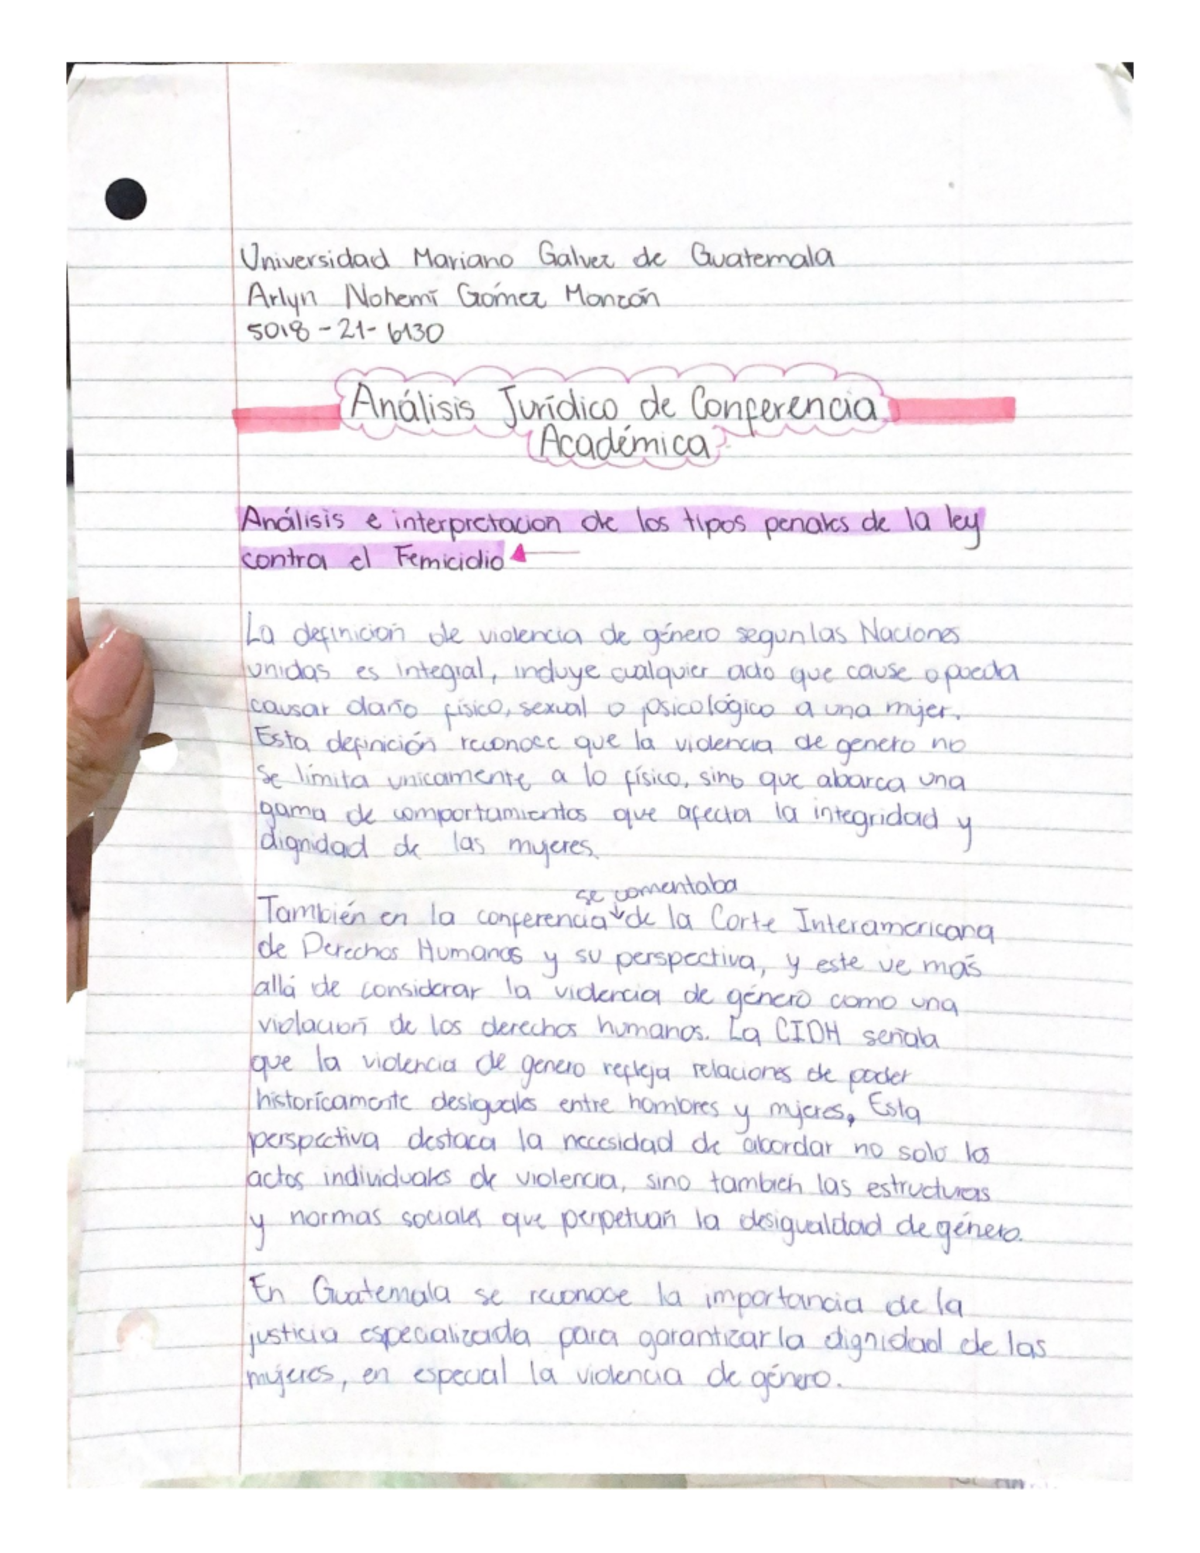 Universidad Mariano Galvez de Guatemala
Arlyn Nohemí Gómez Monzón
5018-21-6130
Análisis Jurídico de Conferencia
Académica
Análisis e interpretacion de los tipos penales de la ley
contra el Femicidio
La definición de violencia de género segun las Naciones
unidas es integral, incluye cualquier acto que cause o pueda
causar daño físico, sexual o psicológico a una mujer.
Esta definición reconoce que la violencia de genero no
se límita unicamente a lo físico, sino que abarca una
gama de comportamientos que afecta la integridad y
dignidad de las mujeres.
se comentaba
También en la conferencia de la Corte Interamericana
de Derechos Humanos y su perspectiva, y este ve más
allá de considerar la violencia de género como una
violación de los derechos humanos. La CIDH señala
que la violencia de genero refleja relaciones de poder
historícamente desiguales entre hombres y mujeres, Esta
perspectiva destaca la necesidad de abordar no solo los
actos individuales de violencia, sino también las estructuras
y normas sociales que perpetuan la desigualdad de género.
En Guatemala se reconoce la importancia de la
justicia especializada para garantizar la dignidad de las
mujeres, en especial la violencia de género.